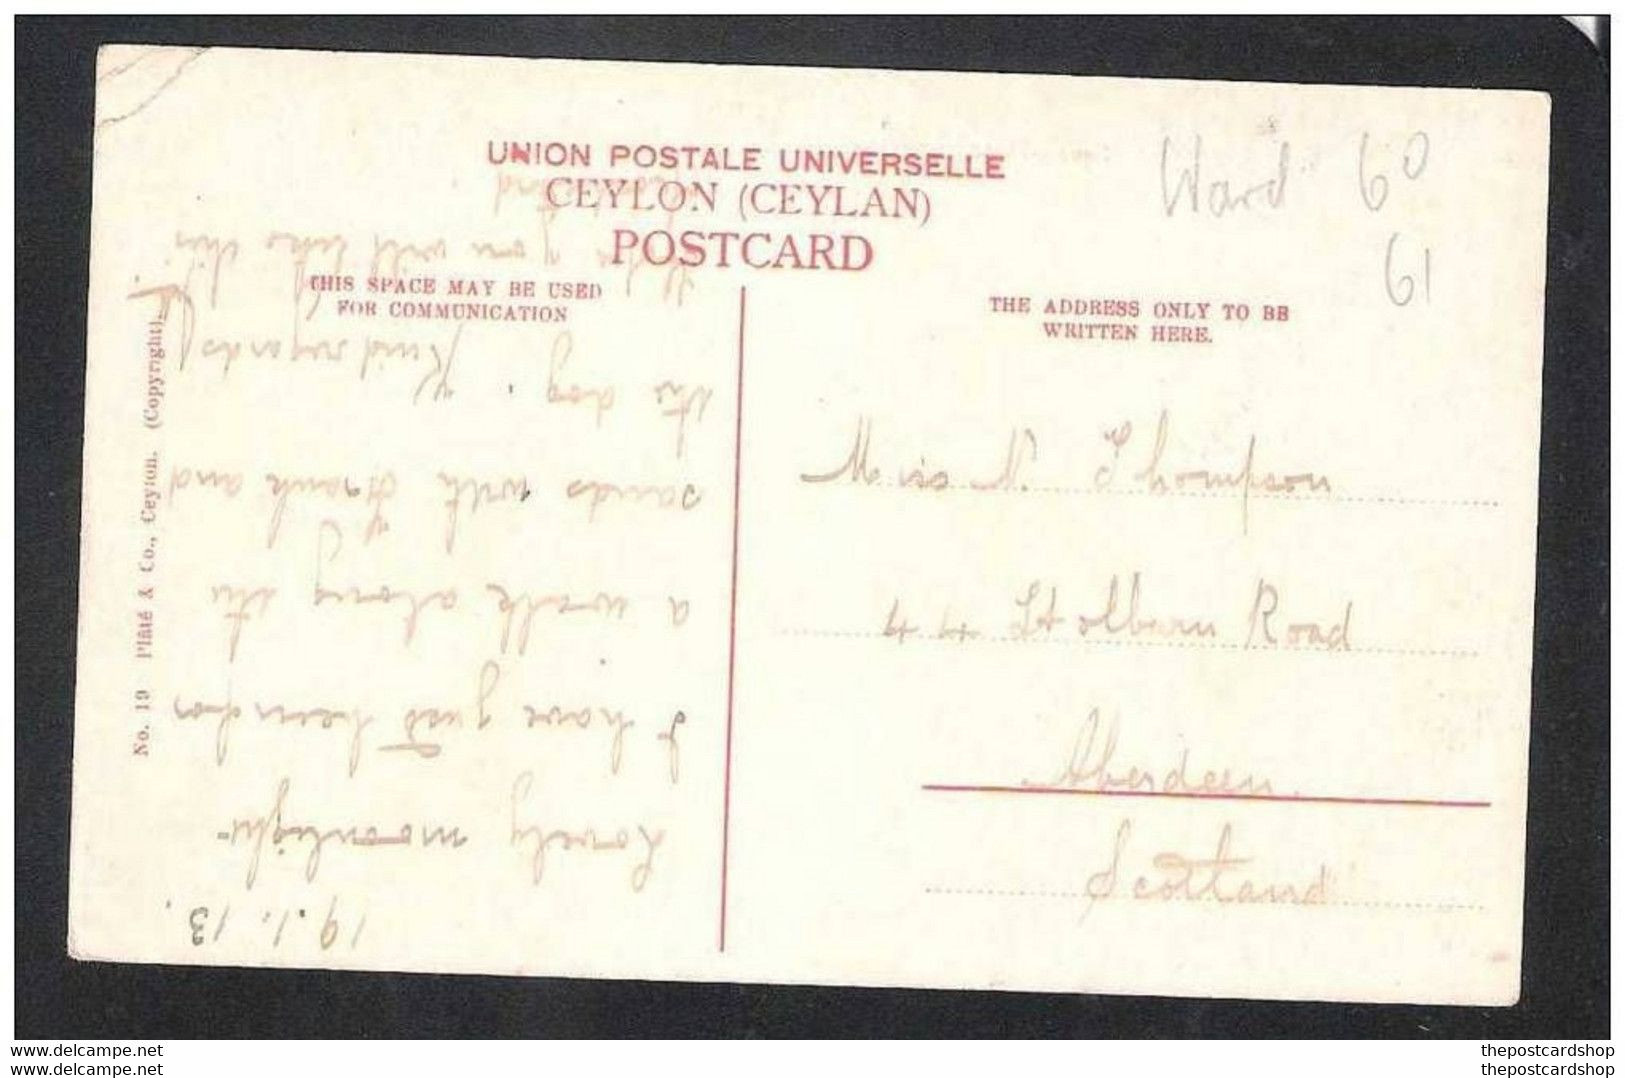 UNION POSTALE UNIVERSELLE
CEYLON (CEYLAN)
POSTCARD
THIS SPACE MAY BE USED
FOR COMMUNICATION
THE ADDRESS ONLY TO BE
WRITTEN HERE.
Ward 60
61
No. 19 Plâté & Co., Ceylon. (Copyright).
19.1.13.
Lovely moonlight-
I have just been for
a walk along the
sands with Frank and
the dog. Kind regards
you will like this
Miss N. Thompson
44 Road
Aberdeen.
Scotland
delcampe.net
delcampe.net
thepostcardshop
thepostcardshop